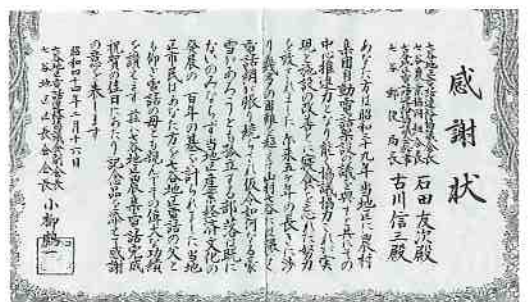 感謝状
七谷地区電話建設委員会長
七谷農業協同組合長
石田友次殿
七谷郵便局長
古川信三殿
あなた方は昭和三十九年当地区に農村
集団自動電話架設の議を興すと共にその
中心推進力となり能く協議協力これが実
現と施設の改善とに寝食を忘れて努力
を致されました 尓来五ヶ年の長きに渉
り幾多の困難を超え山村七谷に隈なく
電話網が張り続らされ仮令如何なる豪
雪があろうとも孤立する部落は既に
ないのみならず当地区産業経済文化の
発展の百年の基が計られました 当地
区市民はあなた方を七谷地区電話の父と
も仰ぎ電話の母とも親んでその偉大な功績
を讃えます 茲に七谷地区農集電話完成
祝賀の佳日にあたり記念品を添えて感謝
の意を表します
昭和四十四年二月十六日
七谷地区区長会会長 小柳鶴一